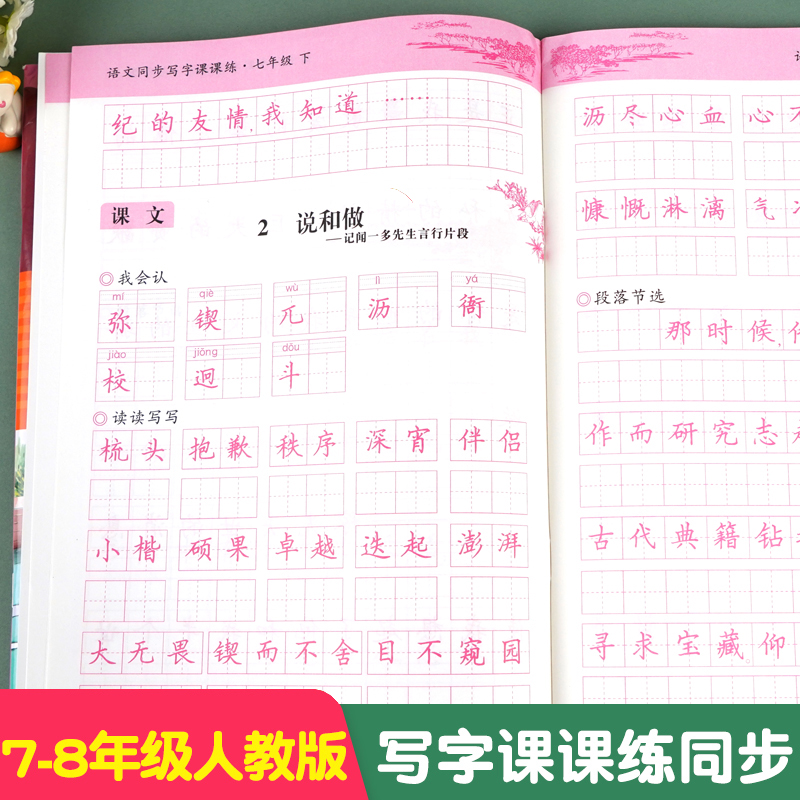 语文同步写字课课练·七年级 下
纪的友情,我知道……
课文
2 说和做
——记闻一多先生言行片段
◎我会认
mí qiè wù lì yá
弥 锲 兀 沥 衙
jiào jiǒng dǒu
校 迥 斗
◎读读写写
梳头 抱歉 秩序 深宵 伴侣
小楷 硕果 卓越 迭起 澎湃
大无畏 锲而不舍 目不窥园
沥尽心血 心
慷慨淋漓 气
◎段落节选
那时候,
作而研究志
古代典籍钻
寻求宝藏。仰
7-8年级人教版 写字课课练同步